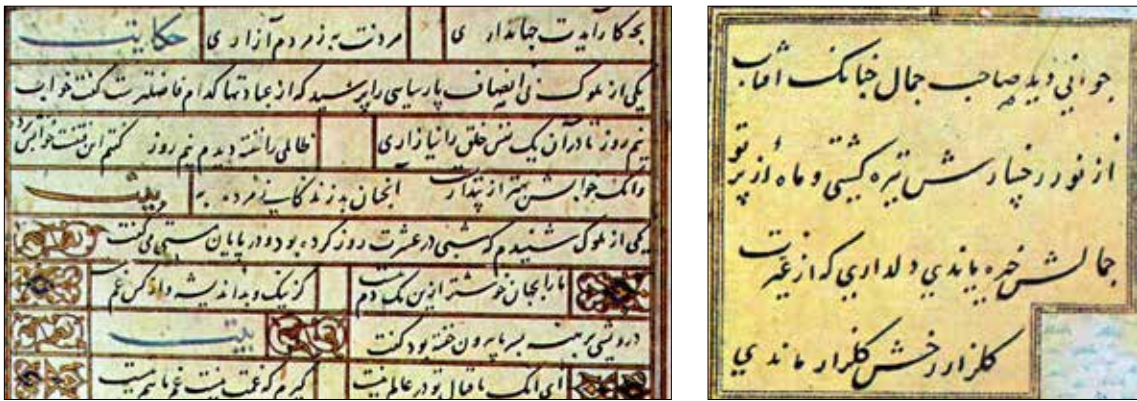 بچه کار آیدت جهانداری مردنت به ز مردم آزاری حکایت
یکی از ملوک بی انصاف پارسایی را پرسید که از عبادتها کدام فاضلترست گفت خواب
نیم روز تا در آن یک نفس خلق را نیازاری ظالمی را خفته دیدم نیم روز گفتم این فتنه است خوابش برده
وانک خوابش بهتر از بیداریست آنچنان بد زندگانی مرده به
یکی از ملوک شنیدم که شبی در عشرت روز کرده بود و در پایان مستی می گفت
ما را بجهان خوشتر ازین یک دم نیست کز نیک و بد اندیشه و از کس غم نیست
درویشی برهنه بسرما برون خفته بود گفت بیت
ای آنک باقبال تو در عالم نیست گیرم که غمت نیست غم ما هم نیست
جوانی دید صاحب جمال چنانک آفتاب
از نور رخسارش تیره گشتی و ماه از پرتو
جمالش خیره بماندی دلداری که از غیرت
گلزار رخش گلزار ماندی